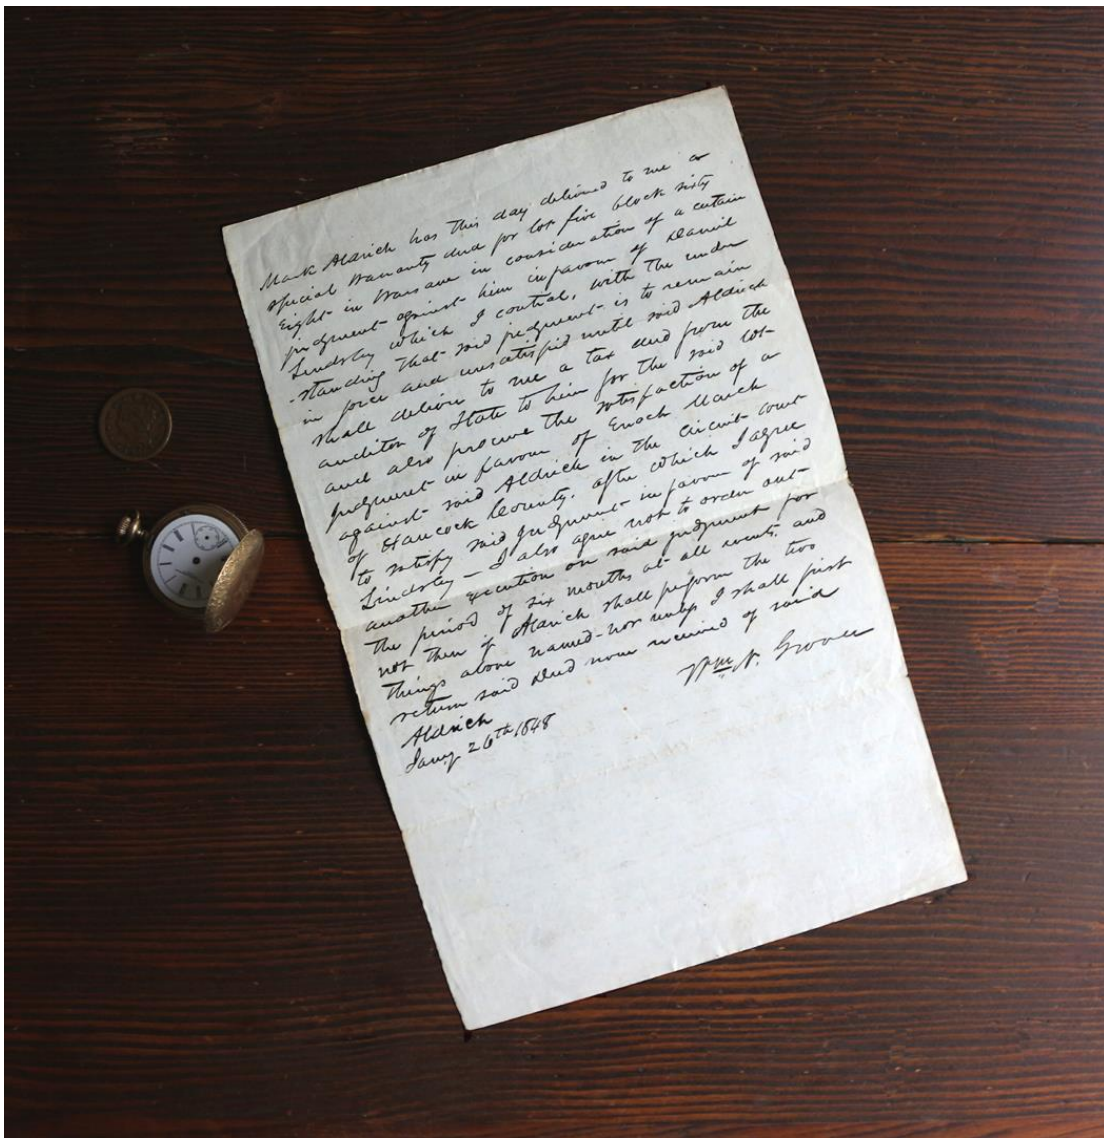 Mark Aldrich has this day delivered to me a
special Warranty deed for lot five block sixty
Eight in Warsaw in consideration of a certain
judgment against him in favour of Daniel
Lindsley which I control, with the under
-standing that said judgment is to remain
in force and unsatisfied until said Aldrich
shall deliver to me a tax deed from the
auditor of State to him for the said lot
and also procure the satisfaction of a
Judgment in favour of Enoch March
against said Aldrich in the circuit court
of Hancock County. after which I agree
to satisfy said Judgment in favour of said
Lindsley – I also agree not to order out
another execution on said judgment for
the period of six months at all events. and
not then if Aldrich shall perform the two
things above named - nor unless I shall first
return said deed now received of said
Aldrich
Jany. 26th 1848
Wm N. Grover